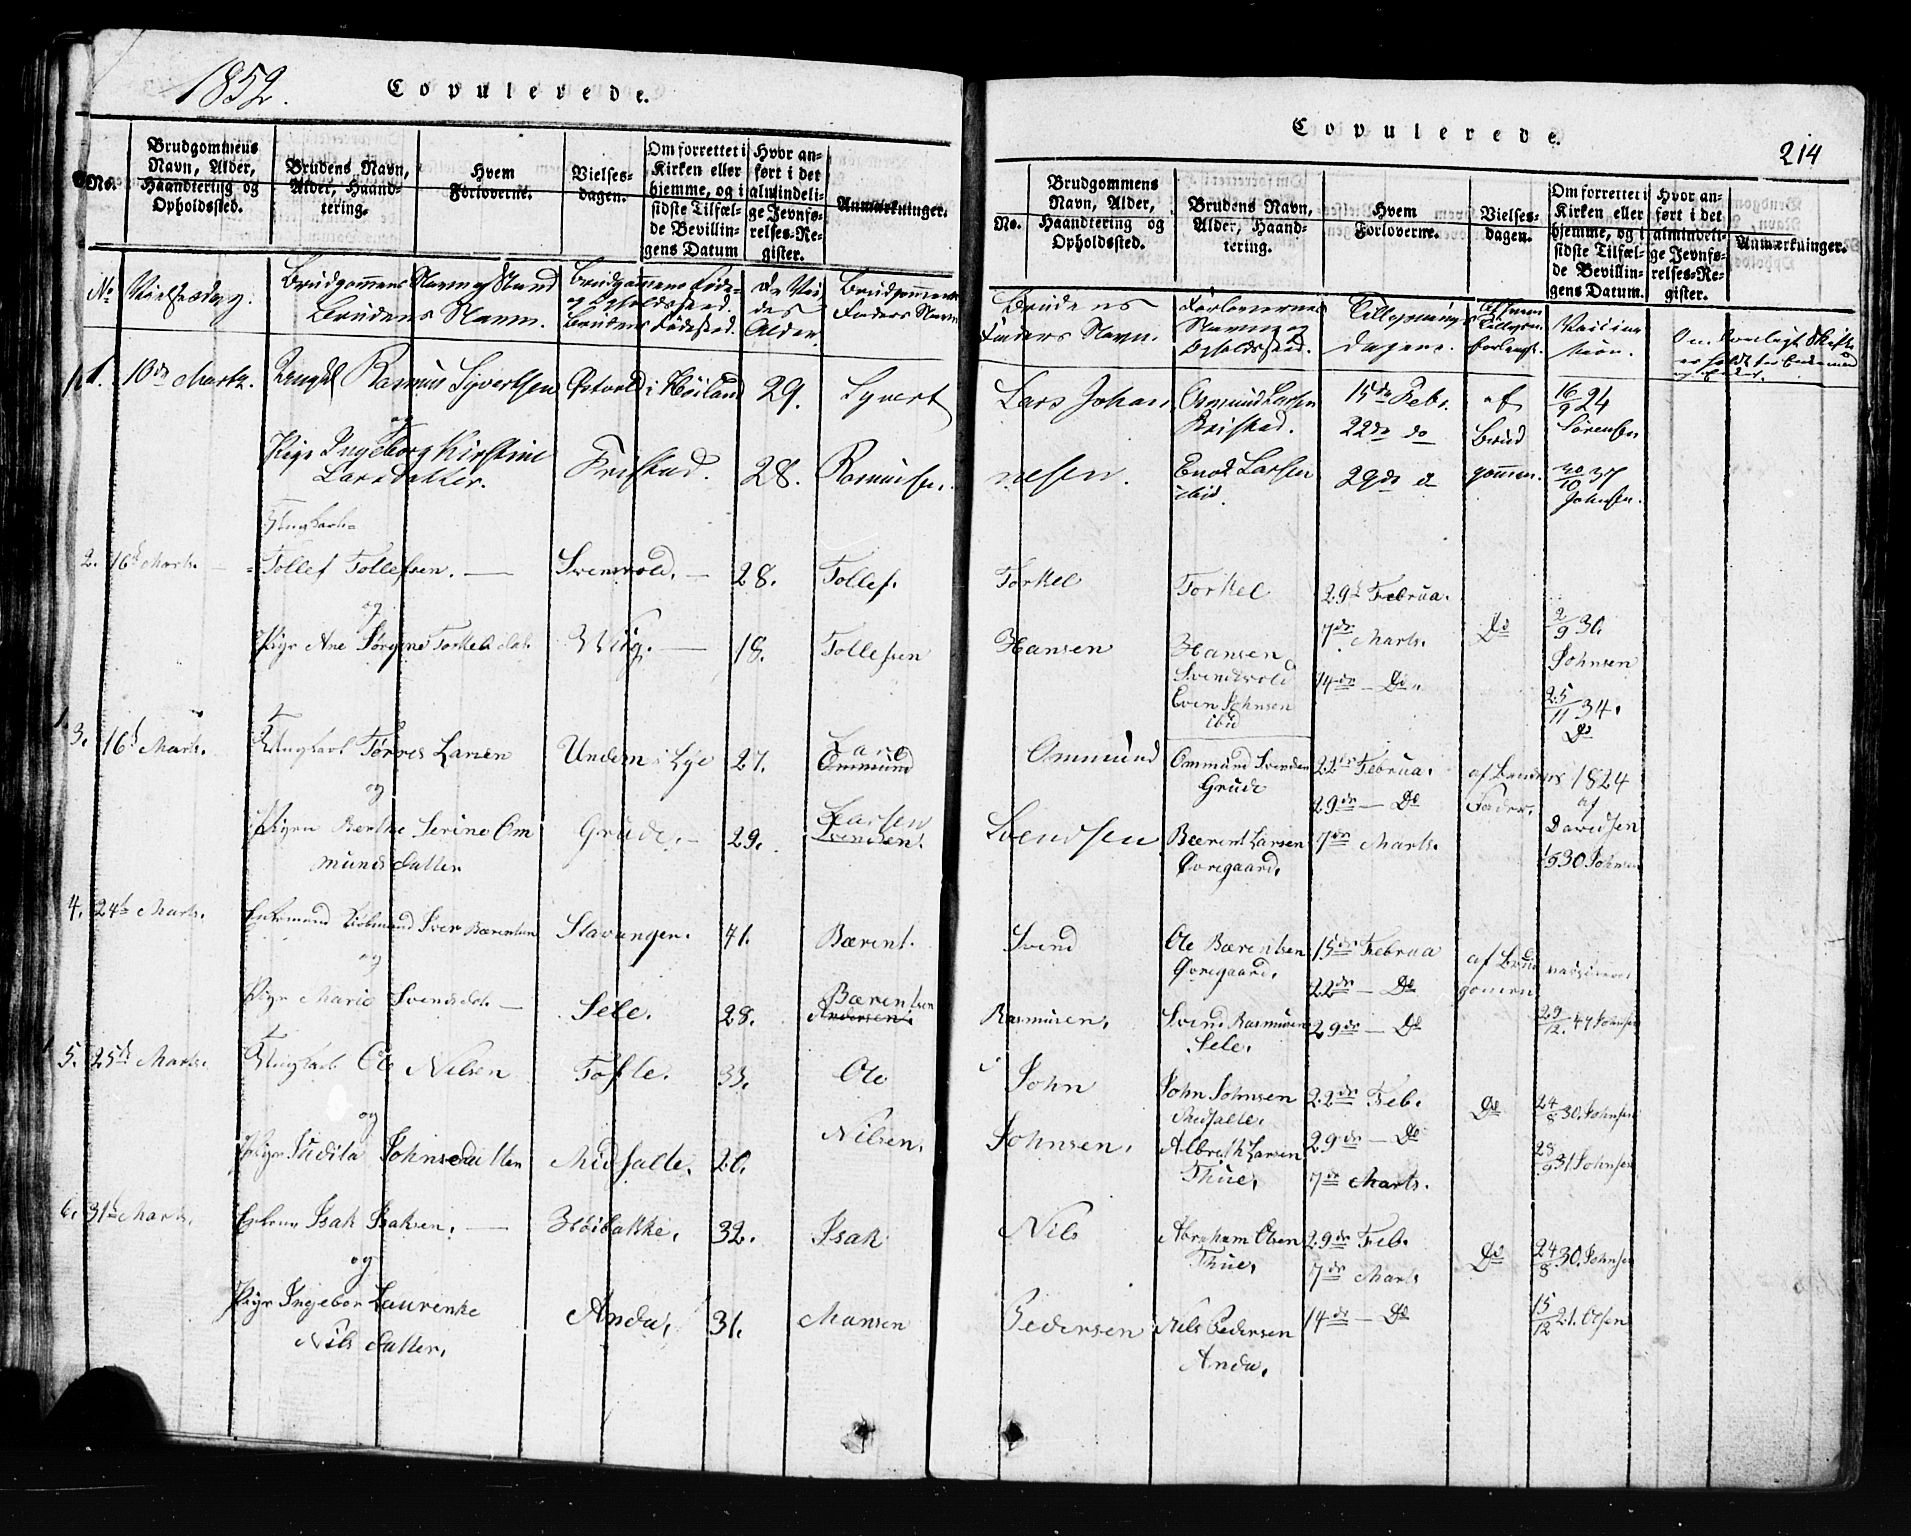 1852.
Copulerede.
No.
Brudgommens Navn, Alder, Haandtering og Opholdssted.
Brudens Navn, Alder, Haandtering.
Hvem Forloverne.
Vielsesdagen.
Om forrettet i Kirken eller hjemme, og i sidste Tilfælde Bevillingens Datum
Hvor anført i det almindelige Jevnførelses-Register.
Anmærkninger.
No
Brudgommens Navn og Stand
Brudens Navn.
Brudgommens Føde- og Opholdssted.
Brudens Fødested.
Alder.
Brudgommens
Faders Navn
1. 10de Marts. Rasmus Syvertsen i Høiland 29. Syvert
og
Pige Ingeborg Kirstine Friestad. 28. Rasmussen.
Larsdatter.
Ungkarl
2. 16d Marts. Tollef Tollefsen. Svenvold. 28. Tollef.
og
Pige Ane Torkelsdat. Wiig. 18. Tollefsen
3. 16d Marts. Ungkarl Tørres Larsen Undem i Lye 27. Lars
Ommund
og
Pigen Berthe Serine Om Grude. 29. Larsen
Svendsen.
munds datter
4. 24de Marts. Enkemand Bærentsen Stavanger. 41. Bærent.
og
Pige Marie Svendsdat. Sele. 28. Bærentsen
Andersen.
5. 25de Marts. Ungkarl Ole Nilsen Tofte. 33. Ole
og
Pige Johnsdatter Midsalte. 20. Nilsen.
6. 31d Marts. Isak Isaksen. 32. Isak
og
Pige Ingebor Laurenke Anda. 31. Mansen
Nils datter.
Copulerede.
214
No.
Brudgommens Navn, Alder, Haandtering og Opholdssted.
Brudens Navn, Alder, Haandtering.
Hvem Forloverne.
Vielsesdagen.
Om forrettet i Kirken eller hjemme, og i sidste Tilfælde Bevillingens Datum.
Hvor anført i det almindelige Jevnførelses-Register.
Anmærkninger.
Brudens
Faders Navn.
Forlovernes
Navn og
Opholdssted.
Tillysnings
dagene.
Lars Johan Osmund Larsen 15de Febr. af 16/9 24
22de do Brud Sørensen
nesen. Larsen 29de gommen. 30/10 37
ibid. Johnsen.
Torkel Torkel 29d Februa.
Hansen Hansen 7de Marts. Do 2/9 30.
Johnsen
14de Do
Even Johnsen 25/11 34.
ibid Do
Ommund Ommund Svendsen 22de Februa. af Brudens 1824
Grude 29de Do Fader. af
Davidsen
Svendsen Bærent Larsen 7de Marts. 30 Johnsen
Øvregaard.
Svend Ole Bærentsen 15de Februa af Brud
Øvregaard. 22de Do gommen
Rasmusen. Svend Rasmusen 29de Do 29/12 47 Johnsen
Sele.
John John Johnsen 22de Feb. Do 24/8 30. Johnsen
Johnsen. Albreth Larsen 29de Do 28/9 31 Johnsen
Thue. 7de Marts.
Nils Abraham Olsen 29de Feb. Do 24/8 30. Johnsen
Thue. 7de Marts
Pedersen Nils Pedersen 14de Do 15/12 21. Olsen
Anda.